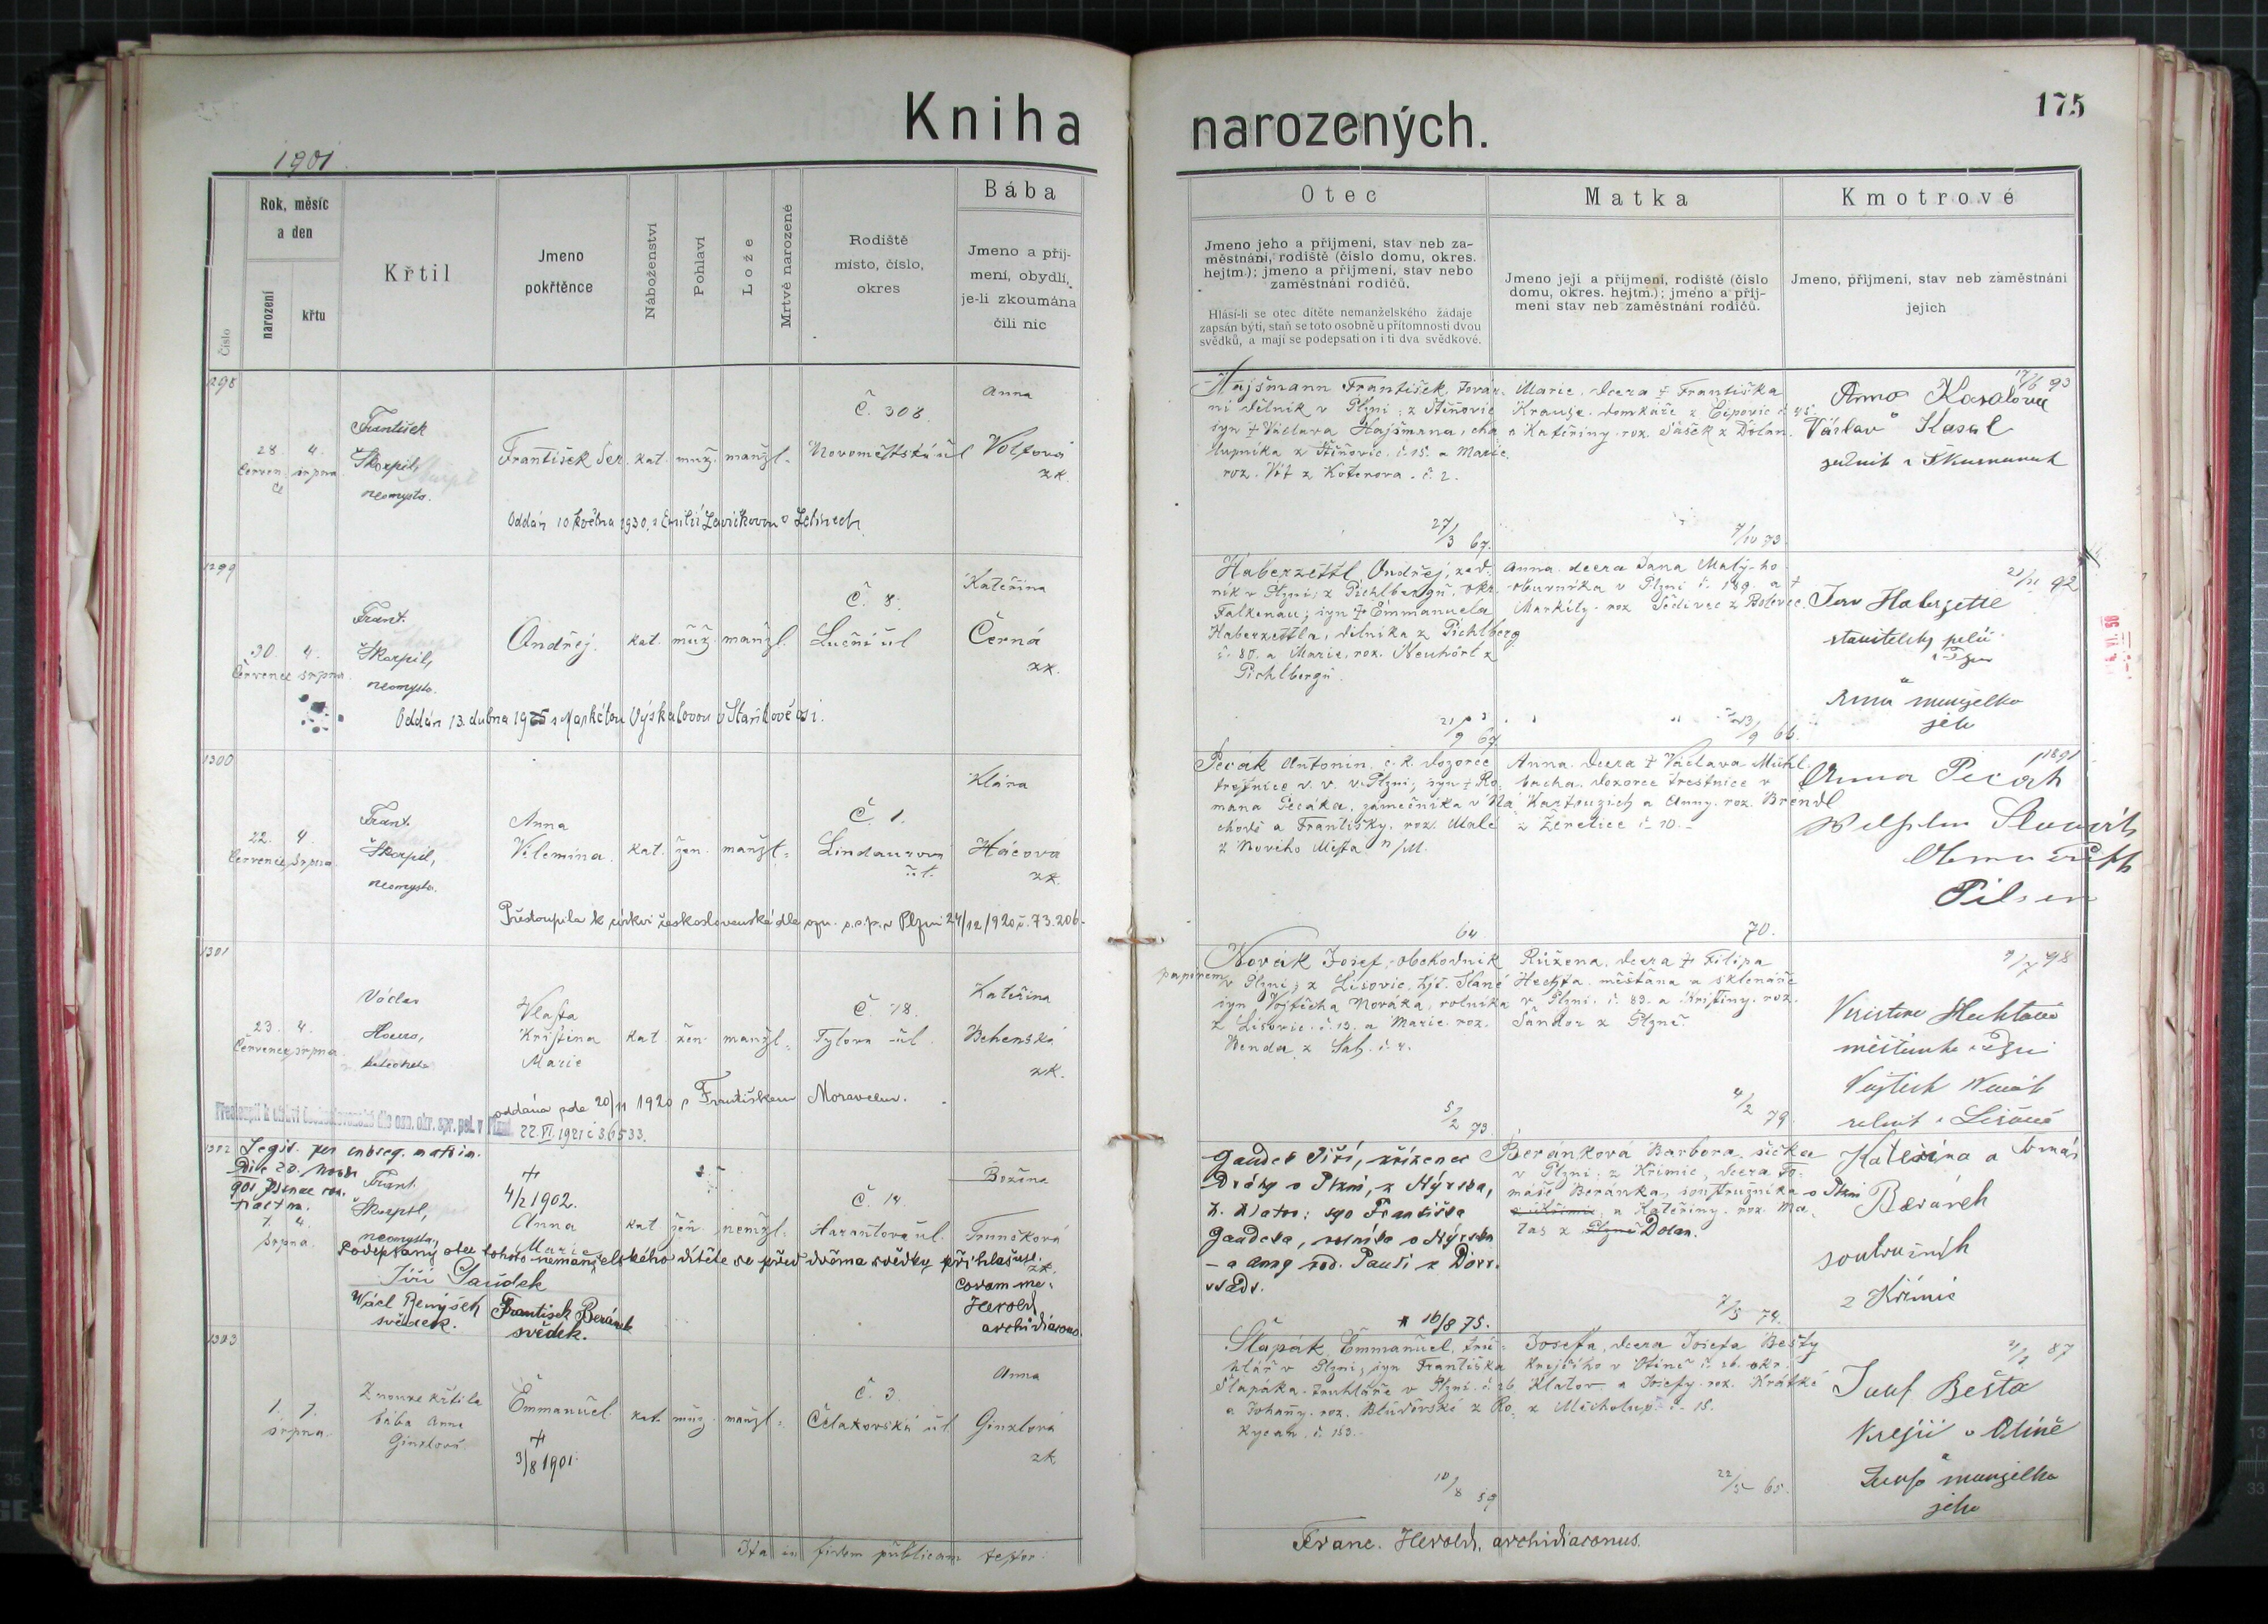 Kniha
narozených.
175
1901.
Číslo
Rok, měsíc
a den
narození
křtu
Křtil
Jmeno
pokřtěnce
Náboženství
Pohlaví
Lože
Mrtvě narozené
Rodiště
místo, číslo,
okres
Bába
Jmeno a příj-
mení, obydlí,
je-li zkoumána
čili nic
Otec
Jmeno jeho a příjmení, stav neb za-
městnání, rodiště (číslo domu, okres.
hejtm.); jmeno a příjmení, stav nebo
zaměstnání rodičů.
Hlásí-li se otec dítěte nemanželského žádaje
zapsán býti, staň se toto osobně u přítomnosti dvou
svědků, a mají se podepsati on i ti dva svědkové.
Matka
Jmeno její a příjmení, rodiště (číslo
domu, okres. hejtm.); jmeno a příj-
mení stav neb zaměstnání rodičů.
Kmotrové
Jmeno, příjmení, stav neb zaměstnání
jejich
1298
28. července
4. srpna
František
Škorpil,
neomysta.
František Ser.
kat.
muž.
manžl.
Č. 308.
Novoměstská ul
Anna
Volfová
zk.
Oddán 10. května 1930 s Emilií Levičkovou v Letinech.
Hajšmann František, továr-
ní dělník v Plzni; z Štěnovic
syn † Václava Hajšmana, cha
lupníka z Štěnovic č. 15. a Marie
roz. Vít z Koterova. č. 2.
27/3 67.
Marie, dcera † Františka
Krause, domkáře z Lipovic č. 45.
a Kateřiny. roz. Sášek z Dolan.
7/10 73.
17/6 93
Anna Kasalová
Václav Kasal
1299
30. července
4. srpna
Frant.
Škorpil,
neomysta.
Ondřej.
kat.
muž.
manžl.
Č. 8.
Luční ul
Kateřina
Černá
zk.
Oddán 13. dubna 1925 s Markétou Výskalovou v Staňkově vsi.
Haberzettl Ondřej, zed-
ník v Plzni; z Pichlbergu, okr.
Falkenau; syn † Emmanuela
Haberzettla, dělníka z Pichlberg
č. 80. a Marie, roz. Neuhörl z
Pichlbergu.
21/9 67.
Anna. dcera Jana Malý-ho
obuvníka v Plzni č. 189. a †
Markéty. roz Šedivec z Bolevec.
13/9 66.
21/11 92
Jan Haberzettl
stavitelský polír
v Plzni
Anna manželka
jeho
1300
22. července
4. srpna
Frant.
Škorpil,
neomysta.
Anna
Vilemína.
kat.
žen.
manžl.
Č. 1.
Lindaurova
ul.
Klára
Hácova
zk.
Přestoupila k církvi československé dle ozn. o.s.p. v Plzni 24/12/1920 č. 73.206.
Pecák Antonín, c. k. dozorce
trestnice v. v. v Plzni; syn † Ro-
mana Pecáka, zámečníka v Ná
chodě a Františky. roz. Malé
z Nového Města n/M.
64.
Anna. dcera † Václava Mühl-
bacha, dozorce trestnice v
Kartouzich a Anny. roz. Brendl
z Žeretice č. 10.
70.
1891
Anna Pecák
Pilsen
1301
23. července
4. srpna
Václav
Vlasta
Kristina
Marie
kat.
žen.
manžl.
Č. 18.
Tylova ul.
Kateřina
Behenská
zk.
oddána zde 20/11 1920 s Františkem Moravcem.
Přestoupil k církvi československé dle ozn. okr. spr. pol. v Plzni
22. VI. 1921 č 36533.
Novák Josef, obchodník
papírem v Plzni; z Lisovic, hjt. Slané
syn Vojtěcha Nováka, rolníka
z Lisovic. č. 13. a Marie. roz.
Benda z Sať. č. 4.
5/2 73.
Růžena. dcera † Filipa
Hechta. měštana a sklenáře
v Plzni. č. 83. a Kristiny. roz.
Šándor z Plzně.
4/2 79.
9/7 98
Kristina Hechtová
měštanka v Plzni
Vojtěch Novák
rolník v Lisovic
1302
Legit. per subseq. matrim.
Die 20. Novbr
901
Frant.
Škorpil,
neomysta,
1. srpna
4.
†
4/2 1902.
Anna
Marie
kat
žen
nemžl.
Č. 14
Harantova ul.
Božena
Trunečková
zk.
Podepsaný otec tohoto nemanželského dítěte se před dvěma svědky přihlašuje.
Jiří Gaudek
Václ Benýšek
svědek.
František Beránek
svědek.
Coram me:
Herold
archidiaconus.
Gaudek Jiří, zřízenec
Dráhy v Plzni, z Nýrska,
h. Klatov; syn Františka
Gaudeka, rolníka v Nýrsku
a Anny rod. Pauli z Dörr-
* 16/8 75.
Beránková Barbora, šička
v Plzni: z Křimic, dcera To-
máše Beránka, soustružníka v Plzni
a Kateřiny. roz. Ma-
tas z Plzně Dolan.
7/5 74.
Kateřina a Tomáš
Beránek
soustružník
z Křimic
1303
1. 1.
srpna.
Z nouze křtila
bába Anna
Ginzlová.
Emmanuel.
†
3/8 1901.
kat.
muž.
manžl.
Č. 3.
Čelakovská ul
Anna
Ginzlová
zk
Šlapák, Emmanuel, tru-
hlář v Plzni, syn Františka
Šlapáka. truhláře v Plzni. č. 26
a Johany. roz. Bludovské z Ro-
kycan. č. 153.
10/8 59
Josefa, dcera Josefa Bešty
Krejčího v Otíně č. 26. okr.
Klatov. a Josefy. roz. Krátké
z Měcholup. č. 15.
22/5 65.
87
Josef Bešta
krejčí v Otíně
Josefa manželka
jeho
Ita in fidem publicam testor:
Franc. Herold, archidiaconus.